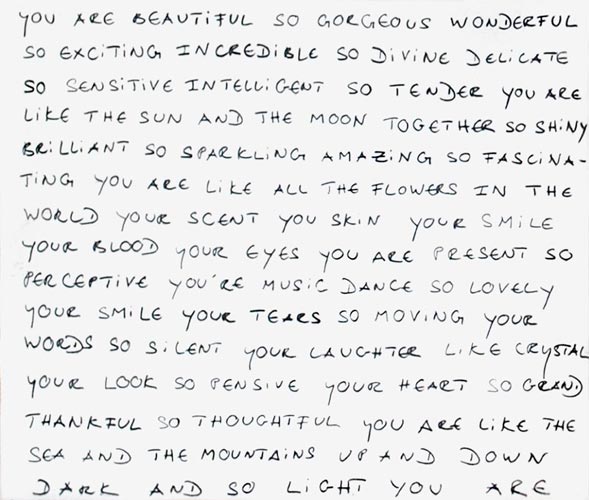 YOU ARE BEAUTIFUL SO GORGEOUS WONDERFUL
SO EXCITING INCREDIBLE SO DIVINE DELICATE
SO SENSITIVE INTELLIGENT SO TENDER YOU ARE
LIKE THE SUN AND THE MOON TOGETHER SO SHINY
BRILLIANT SO SPARKLING AMAZING SO FASCINA-
TING YOU ARE LIKE ALL THE FLOWERS IN THE
WORLD YOUR SCENT YOU SKIN YOUR SMILE
YOUR BLOOD YOUR EYES YOU ARE PRESENT SO
PERCEPTIVE YOU'RE MUSIC DANCE SO LOVELY
YOUR SMILE YOUR TEARS SO MOVING YOUR
WORDS SO SILENT YOUR LAUGHTER LIKE CRYSTAL
YOUR LOOK SO PENSIVE YOUR HEART SO GRAND
THANKFUL SO THOUGHTFUL YOU ARE LIKE THE
SEA AND THE MOUNTAINS UP AND DOWN
DARK AND SO LIGHT YOU ARE